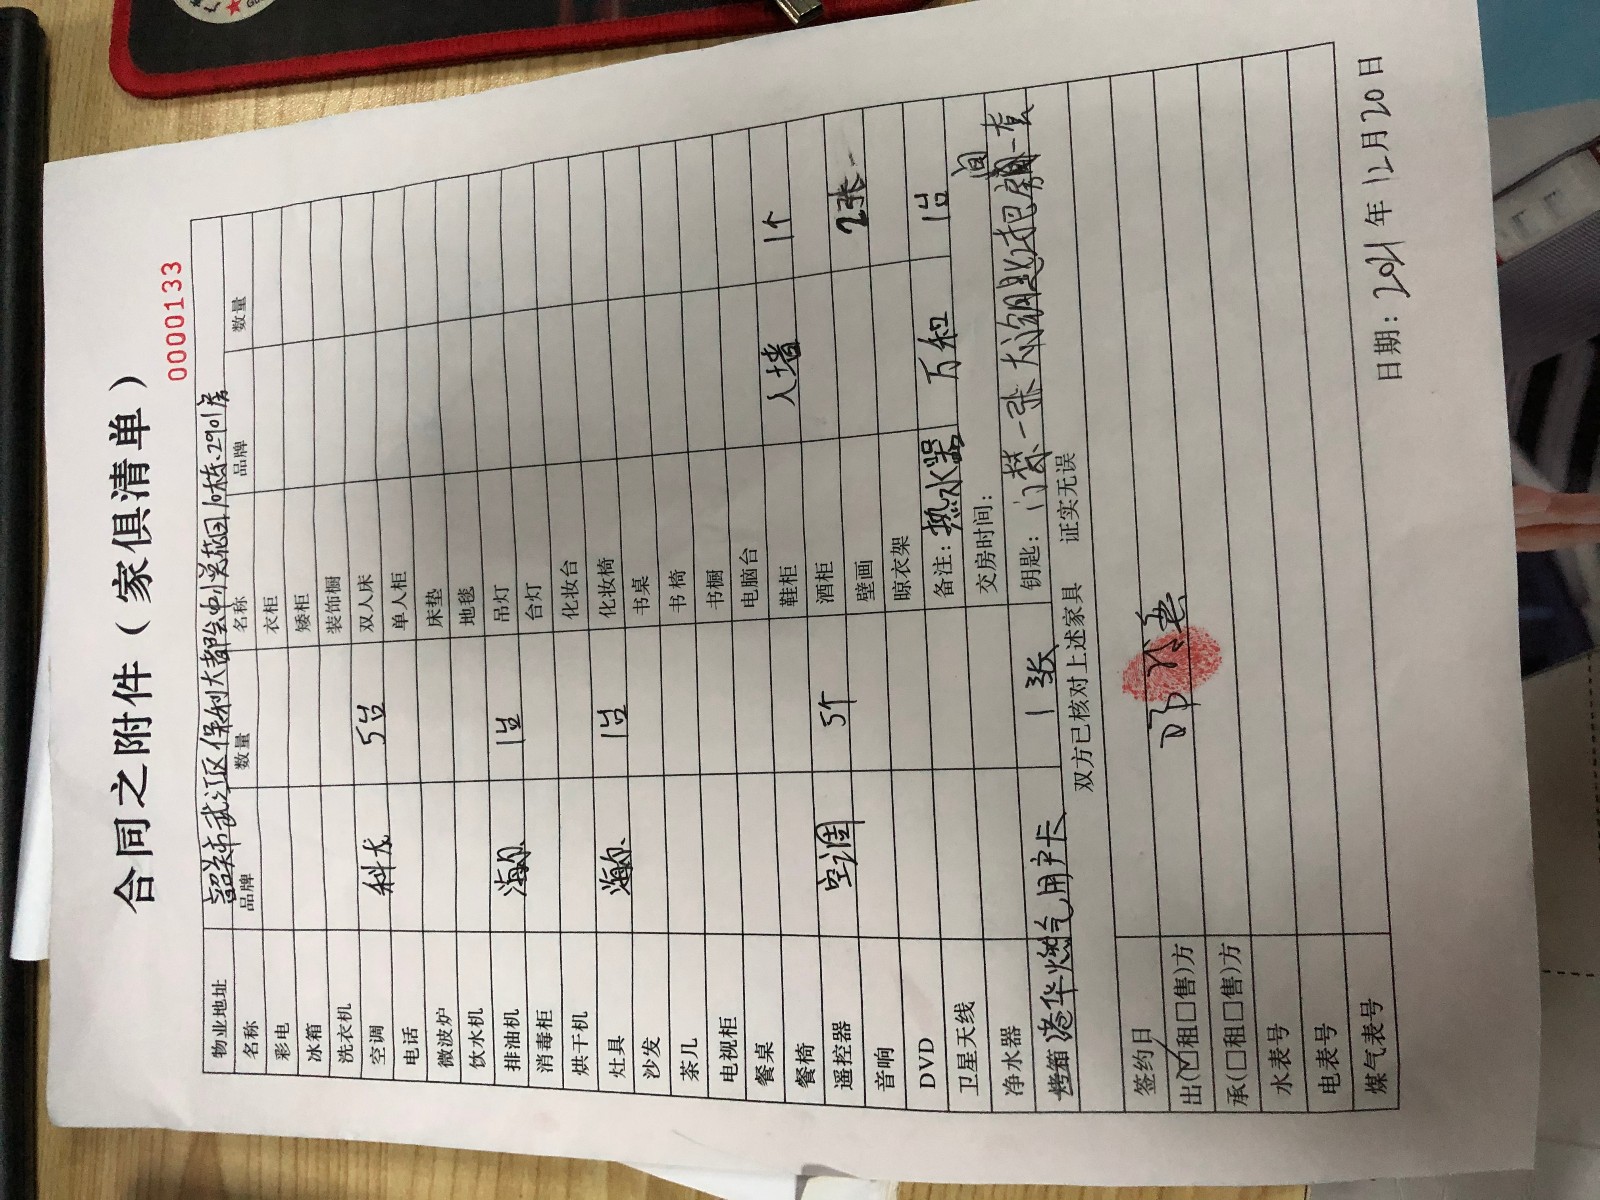 合同之附件（家俱清单）
0000133
物业地址 韶关市武江区保利大都会中心花园10栋2901房
名称 品牌 数量 名称 品牌 数量
彩电 衣柜
冰箱 矮柜
洗衣机 装饰橱
空调 科龙 5台 双人床
电话 单人柜
微波炉 床垫
饮水机 地毯
排油机 海尔 1台 吊灯
消毒柜 台灯
烘干机 化妆台
灶具 海尔 1台 化妆椅
沙发 书桌
茶几 书椅
电视柜 书橱
餐桌 电脑台
餐椅 鞋柜 入墙 1个
遥控器 空调 5个 酒柜
音响 壁画 2张
DVD 晾衣架
卫星天线 备注：热水器 万和 1台
净水器 交房时间：
烤箱 港华燃气用户卡 1张 钥匙：门禁一张 大门钥匙 把 房间一套
双方已核对上述家具 证实无误
签约日
出(☑租□售)方
承(□租□售)方
水表号
电表号
煤气表号
日期：2021年12月20日